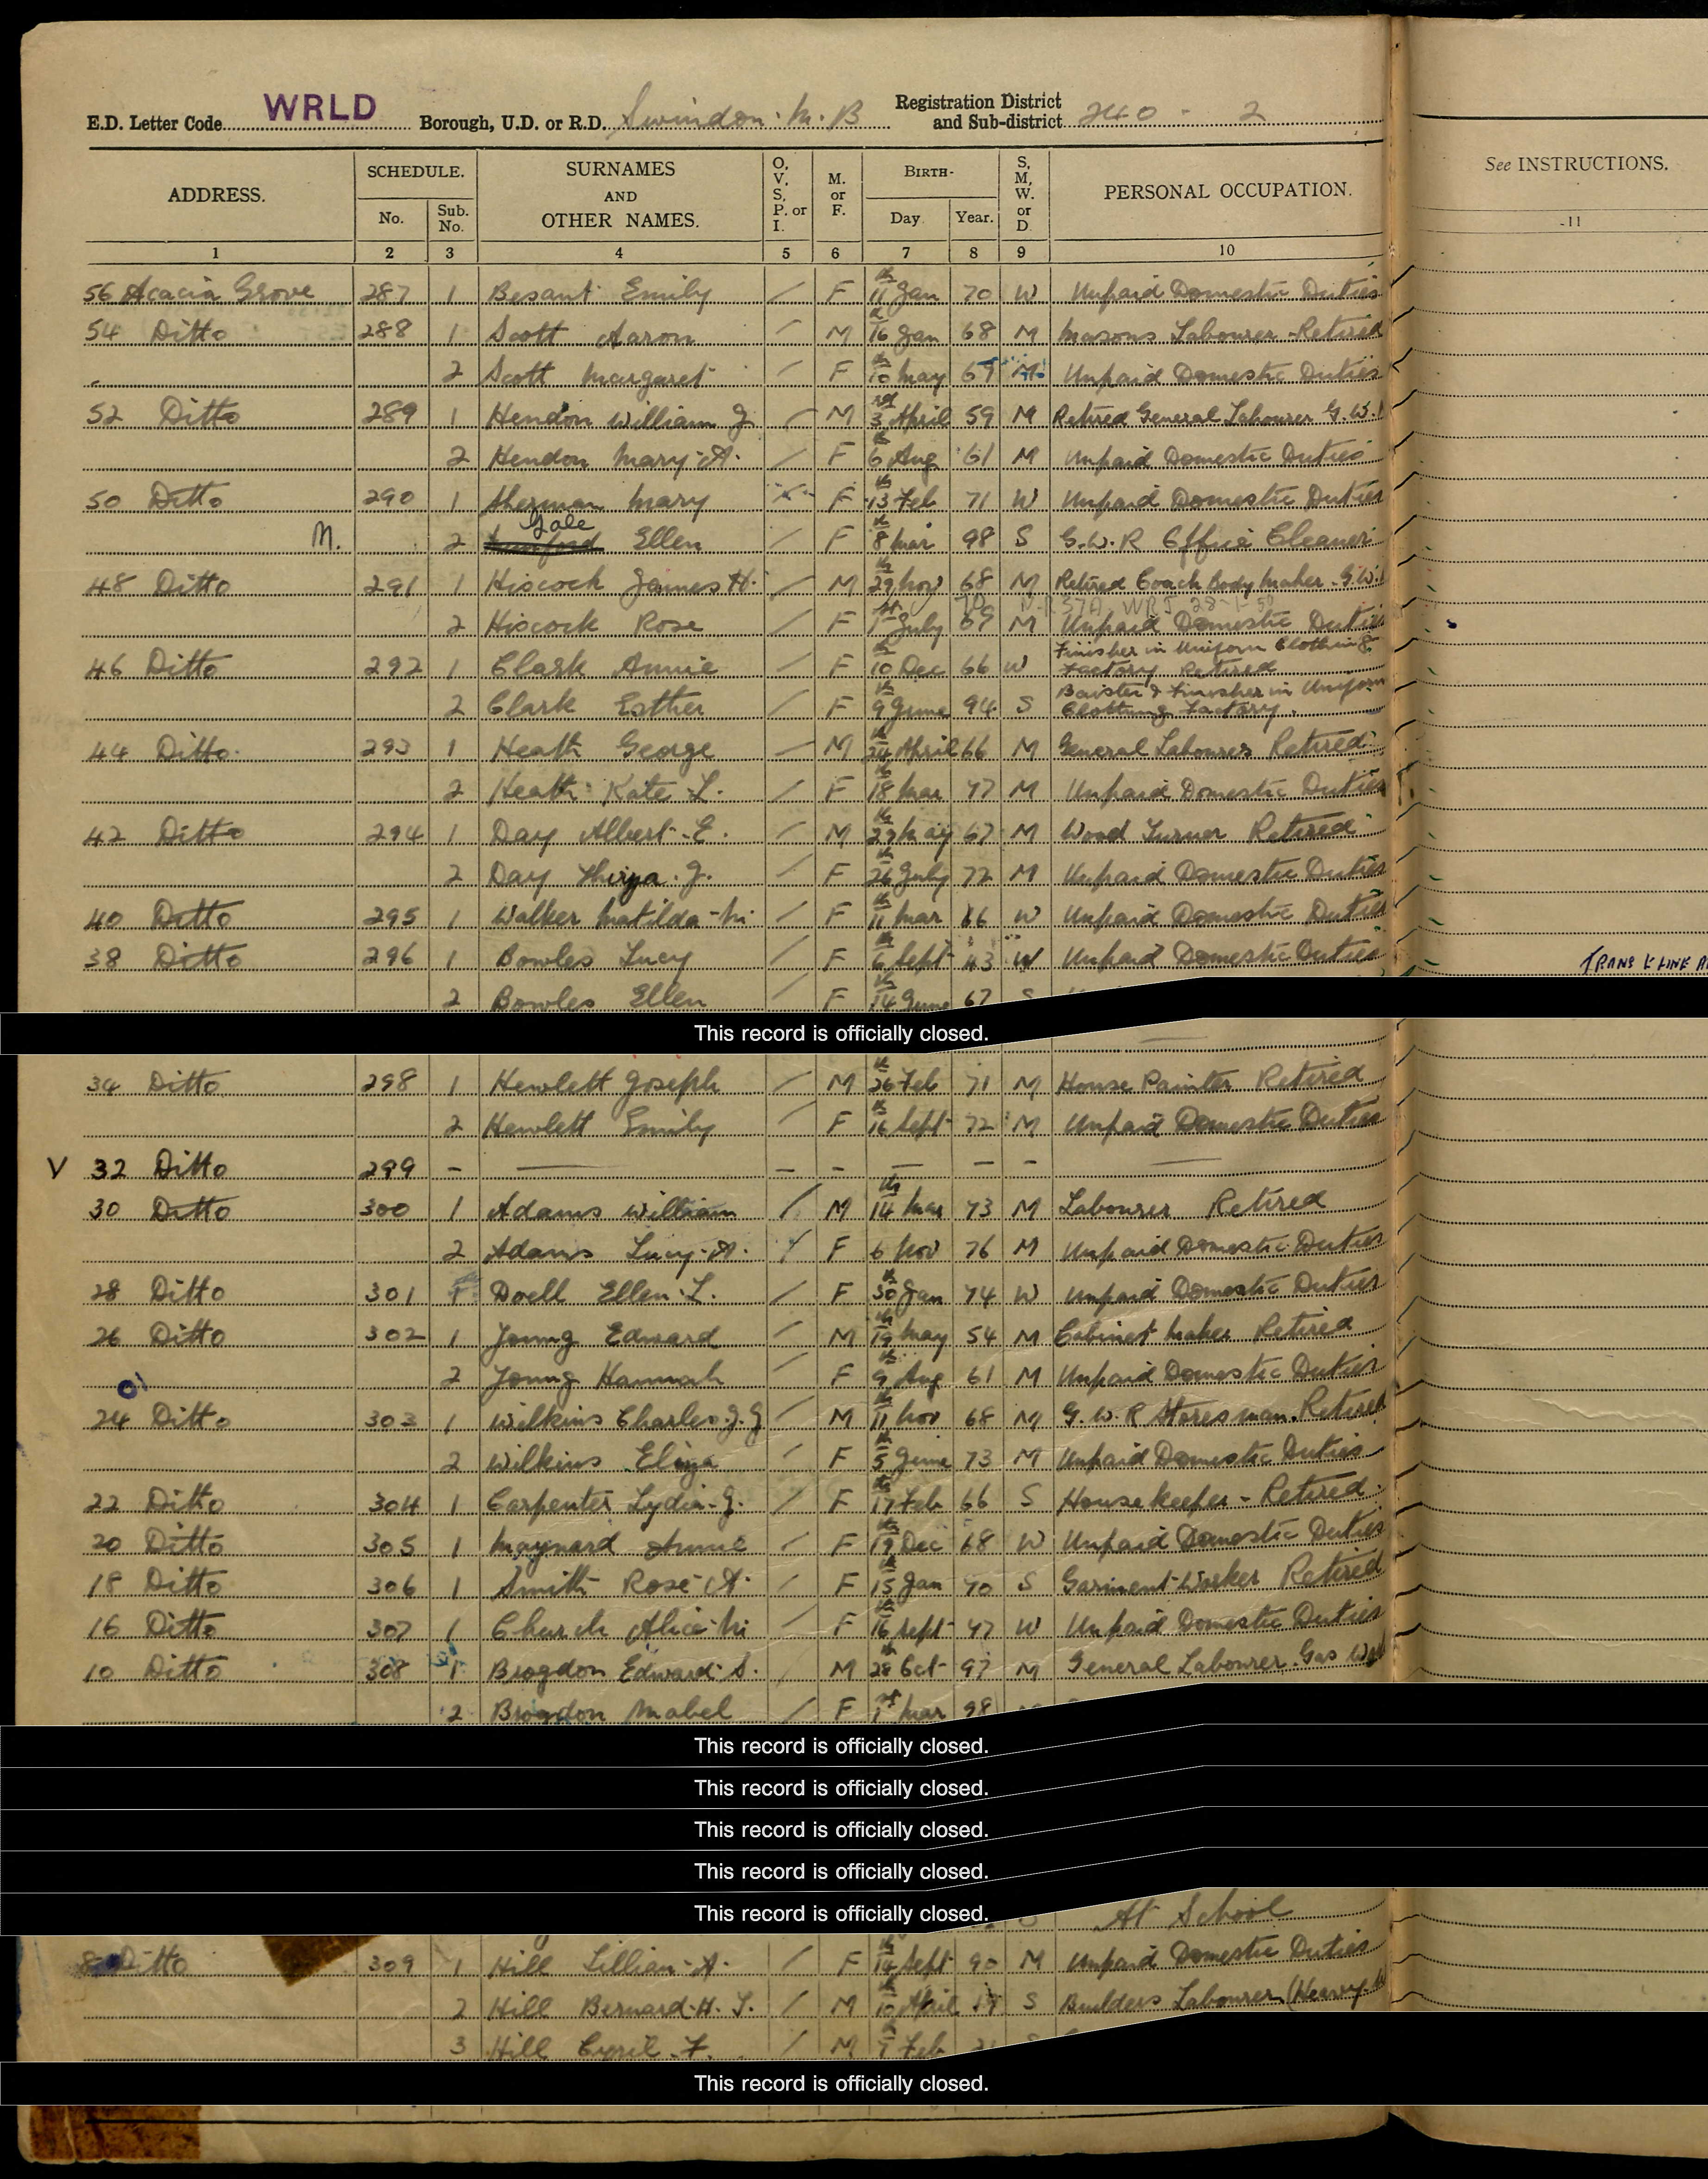 E.D. Letter Code WRLD Borough, U.D. or R.D. Swindon. M. B Registration District and Sub-district 240 - 2
See INSTRUCTIONS.
ADDRESS. SCHEDULE. No. Sub. No. SURNAMES AND OTHER NAMES. O, V, S, P. or I. M. or F. BIRTH- Day Year. S, M, W. or D. PERSONAL OCCUPATION.
1 2 3 4 5 6 7 8 9 10 11
56 Acacia Grove 287 1 Besant Emily / F 11th Jan 70 W Unpaid Domestic Duties
54 Ditto 288 1 Scott Aaron / M 16 Jan 68 M Masons Labourer - Retired
2 Scott Margaret / F 10th May 67 M Unpaid Domestic Duties
52 Ditto 289 1 Hendon William J / M 3rd April 59 M Retired General Labourer G.W.
2 Hendon Mary A. / F 6th Aug 61 M Unpaid Domestic Duties
50 Ditto 290 1 Sherman Mary F 13th Feb 71 W Unpaid Domestic Duties
M. 2 Gale Ellen / F 8th Mar 98 S G.W.R Office Cleaner
48 Ditto 291 1 Hiscock James H. / M 29th Nov 68 M Retired Coach Body Maker. G.W.
70 N.R 37A WRJ 28-1-50
2 Hiscock Rose / F 1st July 69 M Unpaid Domestic Duties
46 Ditto 292 1 Clark Annie / F 10th Dec 66 W Finisher in Uniform Clothing Factory Retired
2 Clark Esther / F 9th June 94 S Baister & Finisher in Uniform Clothing Factory.
44 Ditto 293 1 Heath George / M 24th April 66 M General Labourer Retired
2 Heath Kate L. / F 18th Mar 77 M Unpaid Domestic Duties
42 Ditto 294 1 Day Albert E. / M 27th May 67 M Wood Turner Retired
2 Day Thirza J. / F 26th July 72 M Unpaid Domestic Duties
40 Ditto 295 1 Walker Matilda M / F 11th Mar 66 W Unpaid Domestic Duties
38 Ditto 296 1 Bowles Lucy / F 6th Sept 43 W Unpaid Domestic Duties
TRANS
2 Bowles Ellen / F 14th June 67 S
This record is officially closed.
34 Ditto 298 1 Hewlett Joseph / M 26th Feb 71 M House Painter Retired
2 Hewlett Emily / F 16th Sept 72 M Unpaid Domestic Duties
V 32 Ditto 299 - — - - — - - —
30 Ditto 300 1 Adams William / M 14th Mar 73 M Labourer Retired
2 Adams Lucy A. / F 6 Nov 76 M Unpaid Domestic Duties
28 Ditto 301 1 Doell Ellen L. / F 30th Jan 74 W Unpaid Domestic Duties
26 Ditto 302 1 Young Edward / M 19th May 54 M Cabinet Maker Retired
2 Young Hannah / F 9th Aug 61 M Unpaid Domestic Duties
24 Ditto 303 1 Wilkins Charles J. G / M 11th Nov 68 M G.W.R Storesman. Retired
2 Wilkins Eliza / F 5th June 73 M Unpaid Domestic Duties
22 Ditto 304 1 Carpenter Lydia J. / F 17th Feb 66 S Housekeeper - Retired.
20 Ditto 305 1 Maynard Annie / F 19th Dec 68 W Unpaid Domestic Duties
18 Ditto 306 1 Smith Rose A. / F 15th Jan 70 S Garment Worker Retired
16 Ditto 307 1 Church Alice M / F 16th Sept 47 W Unpaid Domestic Duties
10 Ditto 308 1 Brogdon Edward S. / M 28th Oct 97 M General Labourer. Gas
2 Brogdon Mabel / F 1st Mar 98
This record is officially closed.
This record is officially closed.
This record is officially closed.
This record is officially closed.
This record is officially closed.
At School
8 Ditto 309 1 Hill Lillian A. / F 14th Sept 90 M Unpaid Domestic Duties
2 Hill Bernard H. / M 10th April 19 S Builders Labourer (Heavy
3 Hill Cyril F. / M Feb
This record is officially closed.